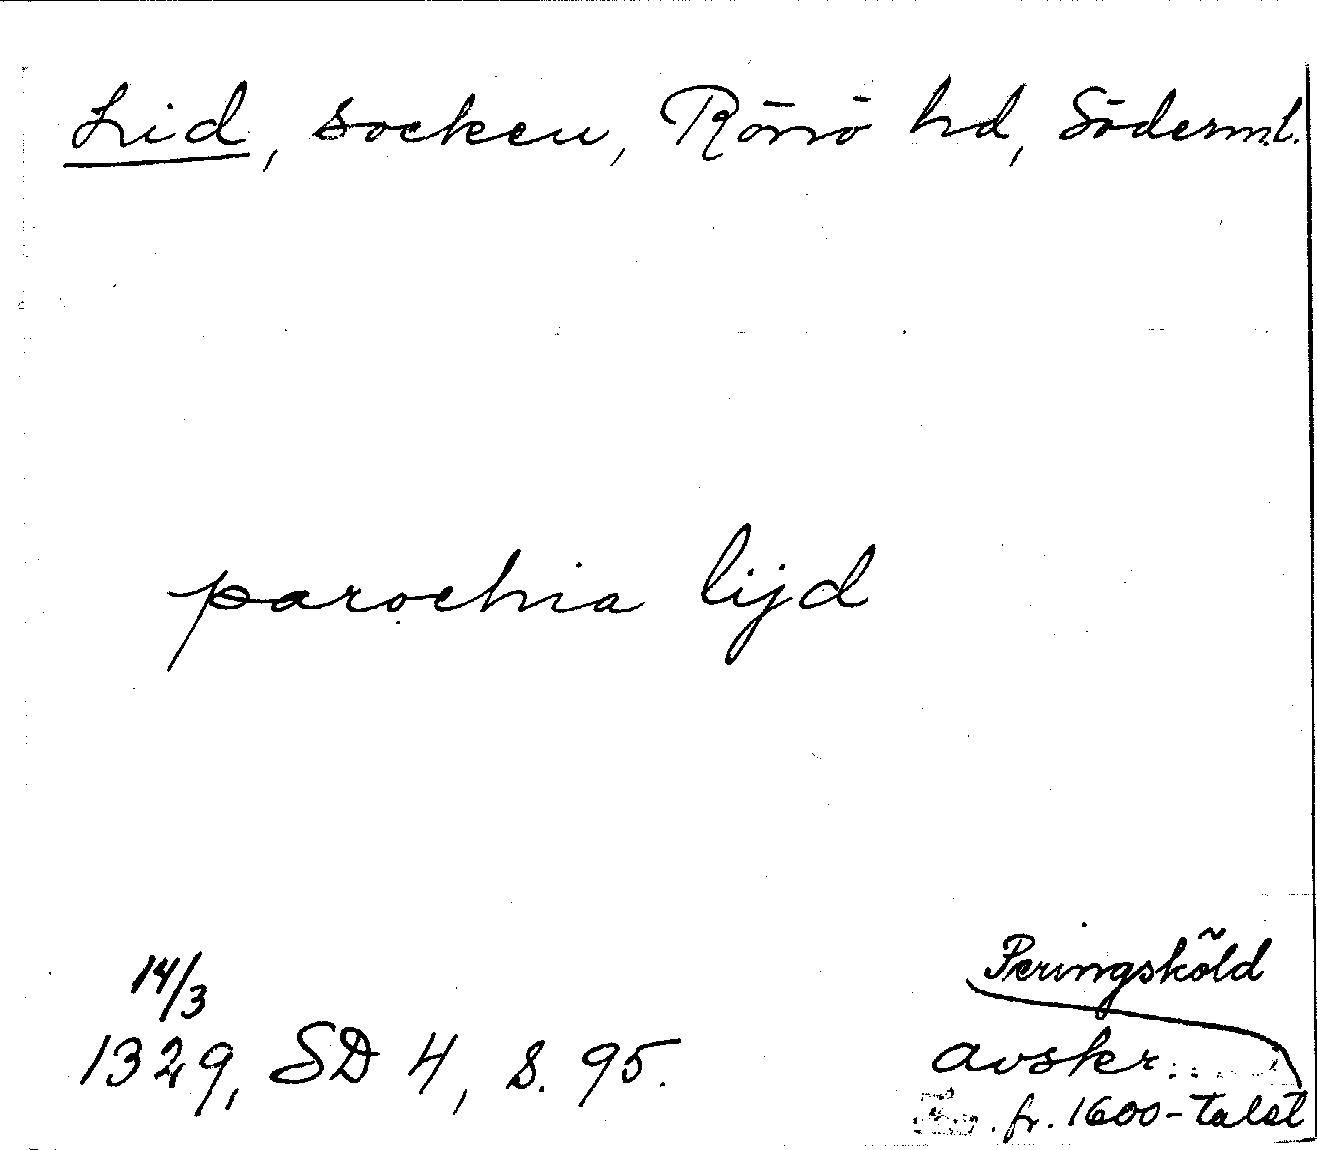 Lid, socken, Rönö hd, Söderml.
parochia lijd
14/3
1329, SD 4, s. 95.
Peringsköld
avskr.
fr. 1600-talet